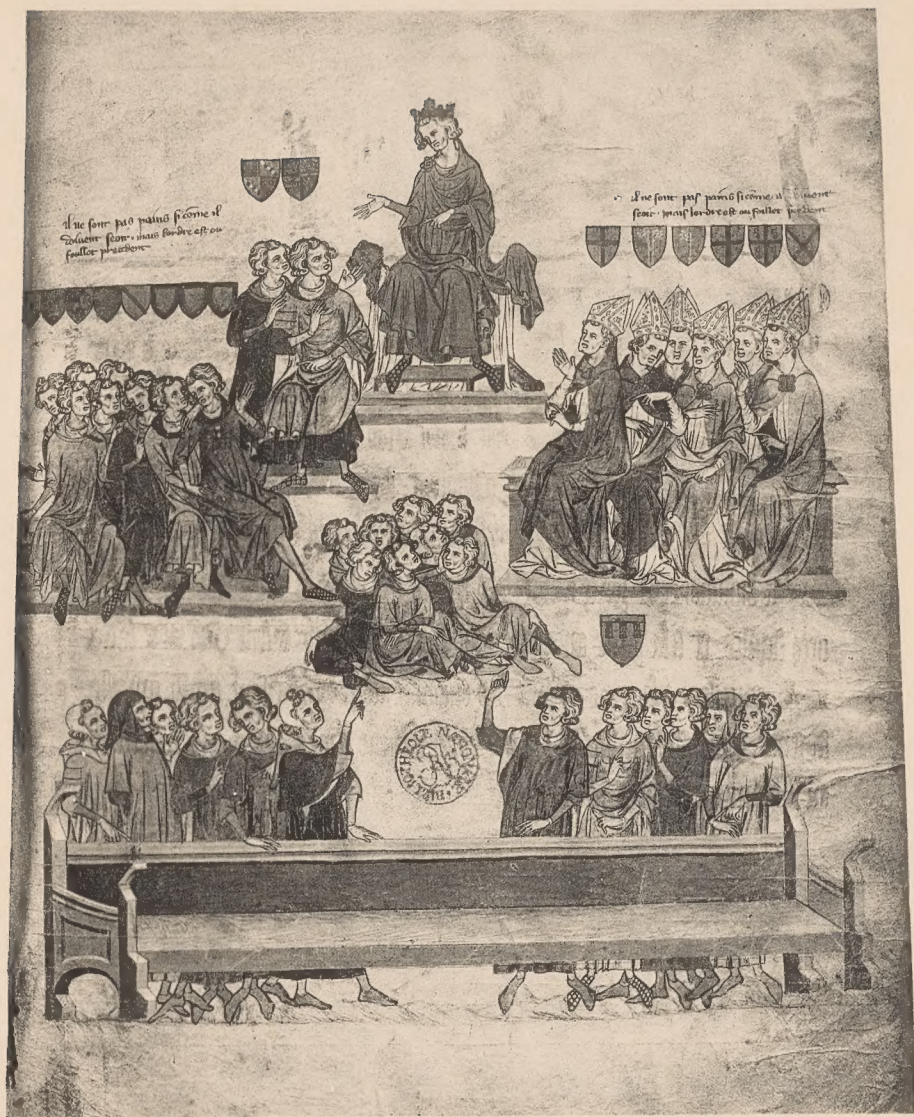 il ne sont pas paints si come il
doivent seoir . mais lordre est ou
foullot precedent
il ne sont pas paints si come il doivent
seoir . mais lordre est ou foullot precedent